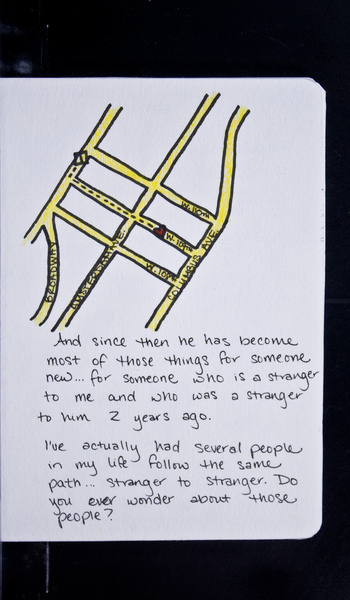 W. 110TH
W. 109TH
W. 108TH
BROADWAY
AMSTERDAM AVE.
COLUMBUS AVE.
And since then he has become
most of those things for someone
new... for someone who is a stranger
to me and who was a stranger
to him 2 years ago.
I've actually had several people
in my life follow the same
path... stranger to stranger. Do
you ever wonder about those
people?